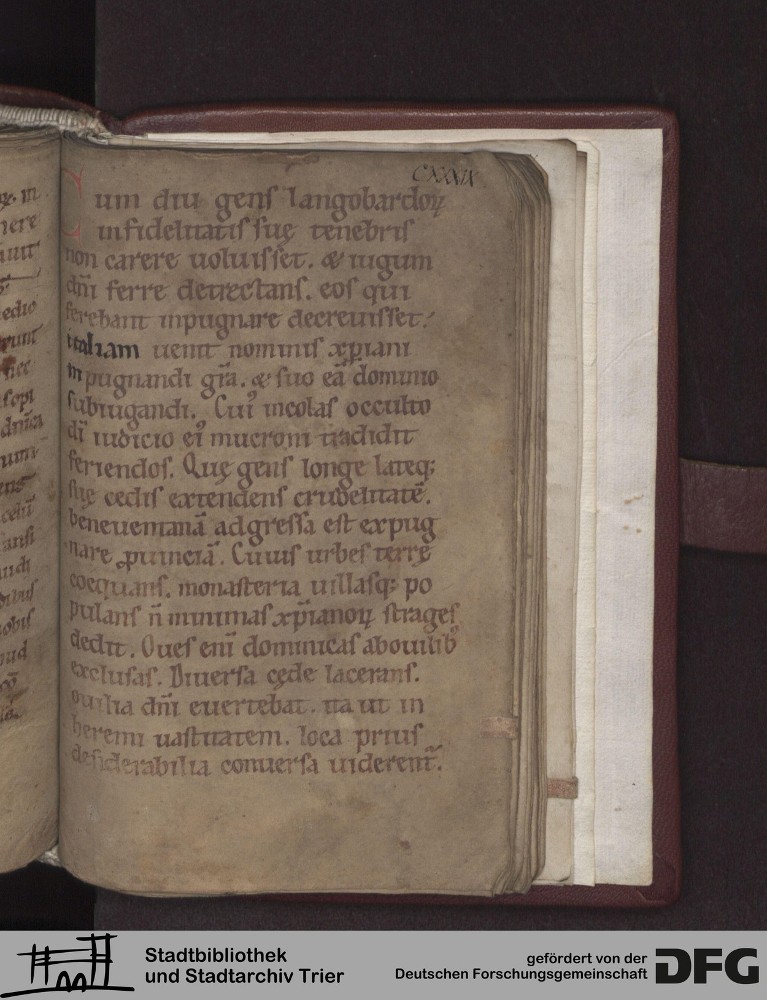 CXXXIX
um diu gens langobardoꝝ
infidelitatis suę tenebris
non carere uoluisset. & iugum
dñi ferre detrectans. eos qui
ferebant inpugnare decreuisset.
italiam uenit nominis xp̃iani
inpugnandi gr̃a. & suo eā dominio
subiugandi. Cuiꝰ incolas occulto
dī iudicio eiꝰ mucroni tradidit
feriendos. Quę gens longe lateq;
suę cedis extendens crudelitatē.
beneuentanā adgressa est expug
nare ꝓuinciā. Cuius urbes terrę
coequans. monasteria uillasq; po
pulans ñ minimas xp̃ianoꝝ strages
dedit. Oues enī dominicas abouilibꝰ
exclusas. Diuersa cęde lacerans.
ouilia dñi euertebat. ita ut in
heremi uastitatem. loca prius
desiderabilia conuersa uiderent̃.
Stadtbibliothek
und Stadtarchiv Trier
gefördert von der
Deutschen Forschungsgemeinschaft
DFG